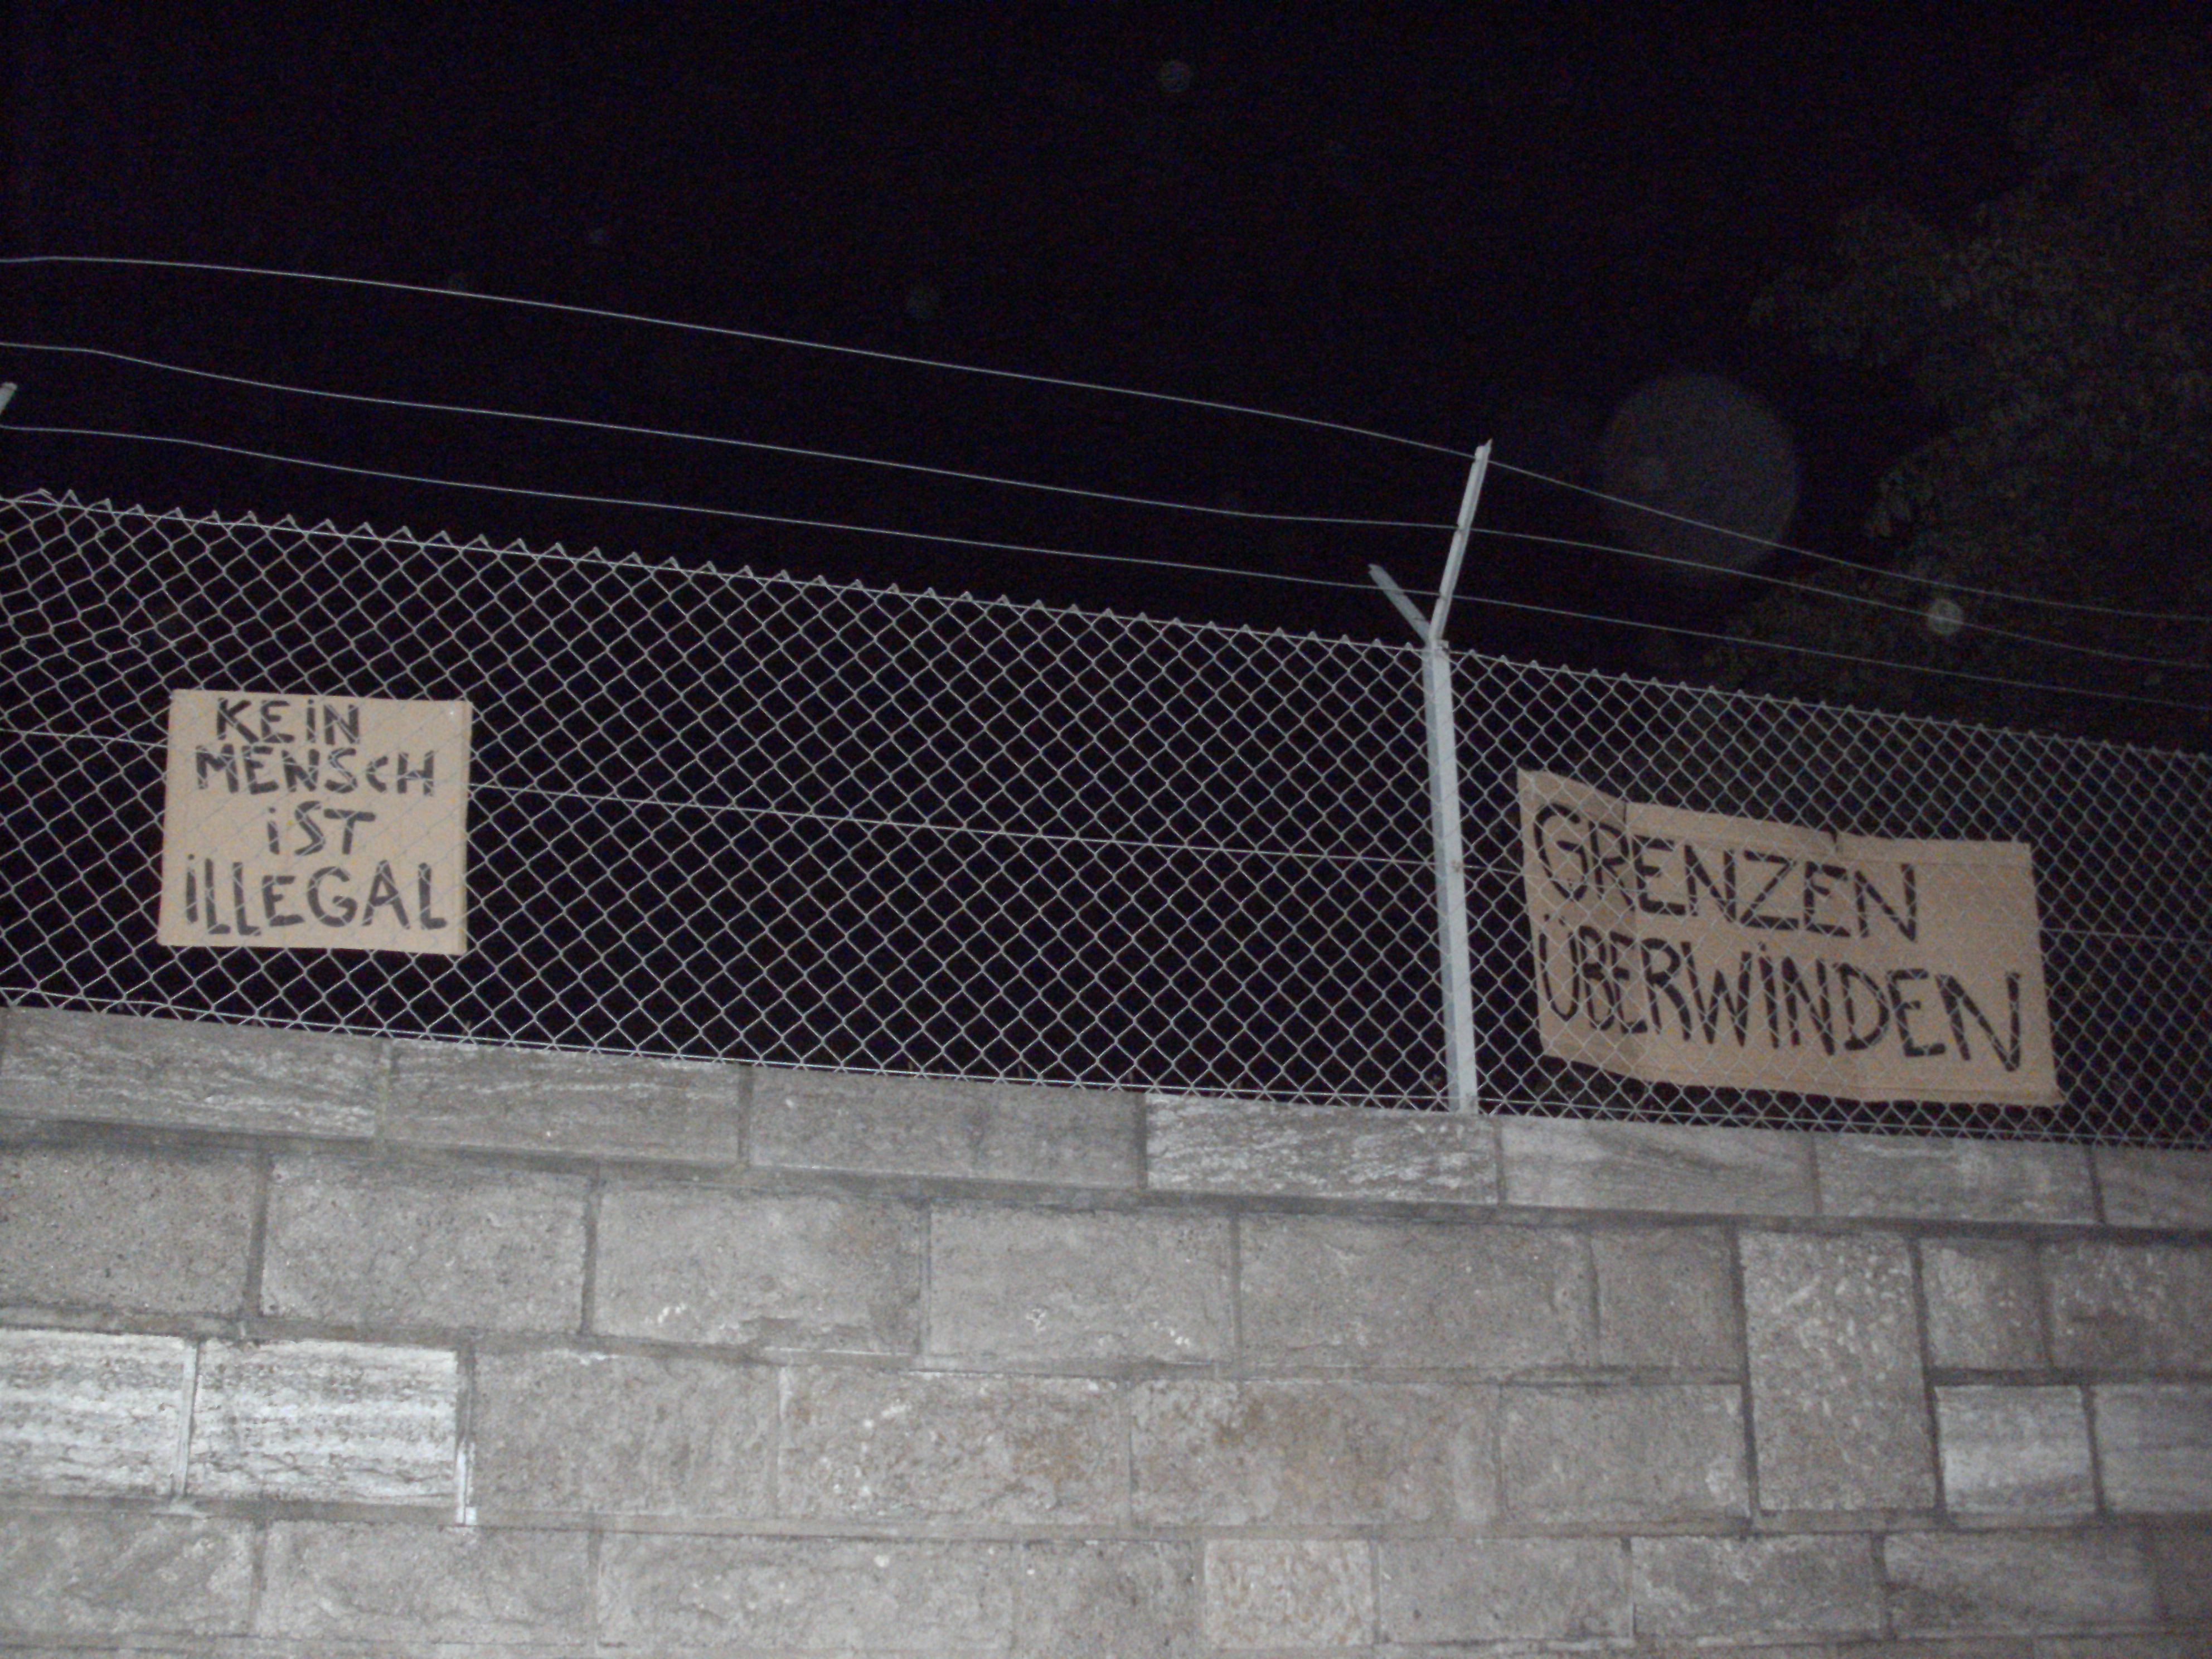 KEiN
MENSCH
iST
iLLEGAL
GRENZEN
ÜBERWiNDEN